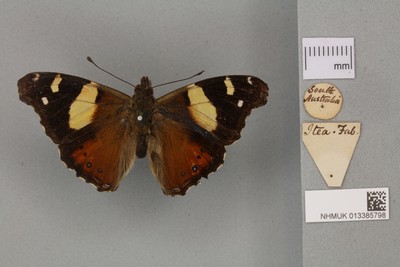 mm
South
Australia
Itea . Fab.
NHMUK 013385798